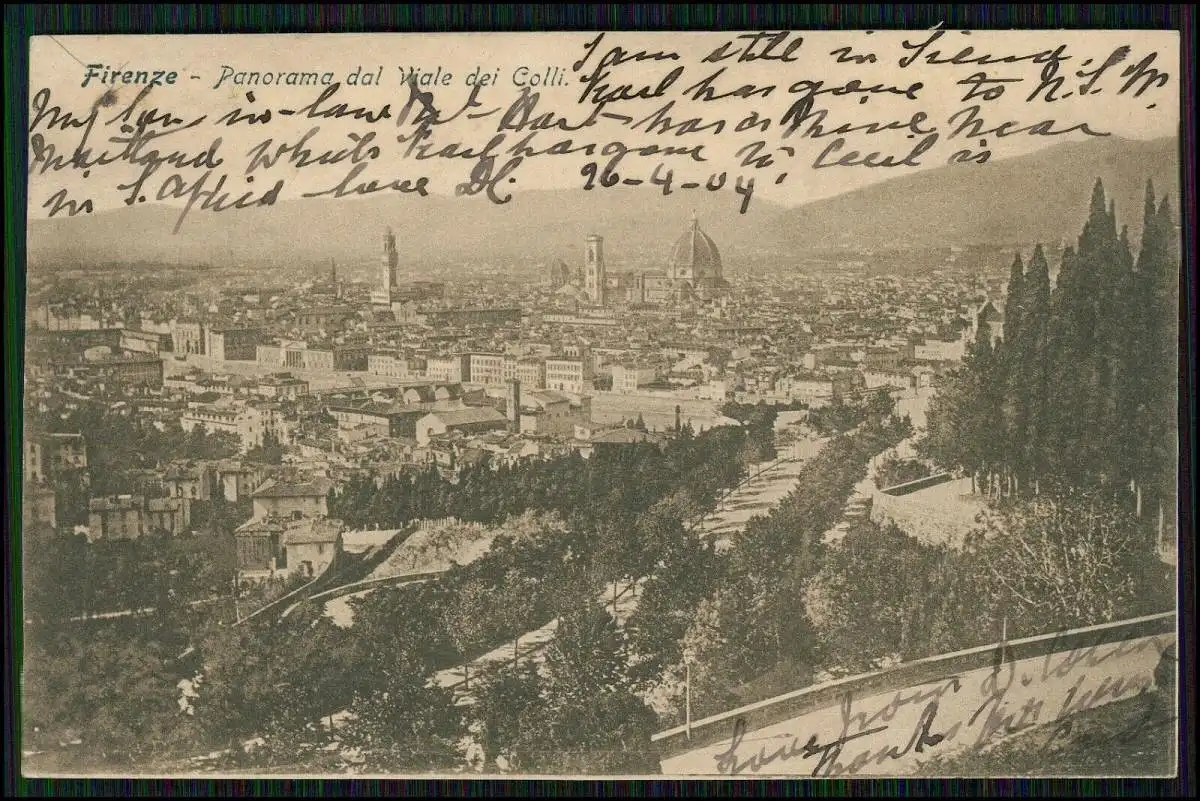 Firenze - Panorama dal Viale dei Colli.
I am still in Siena,
Karl has gone to N.S.W.
My son in-law has a mine near
Maitland which Karl has gone to, Cecil is
in S. Africa love 26-4-04
Love from
thanks for